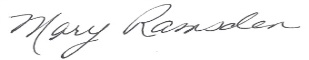 Mary Ramsden